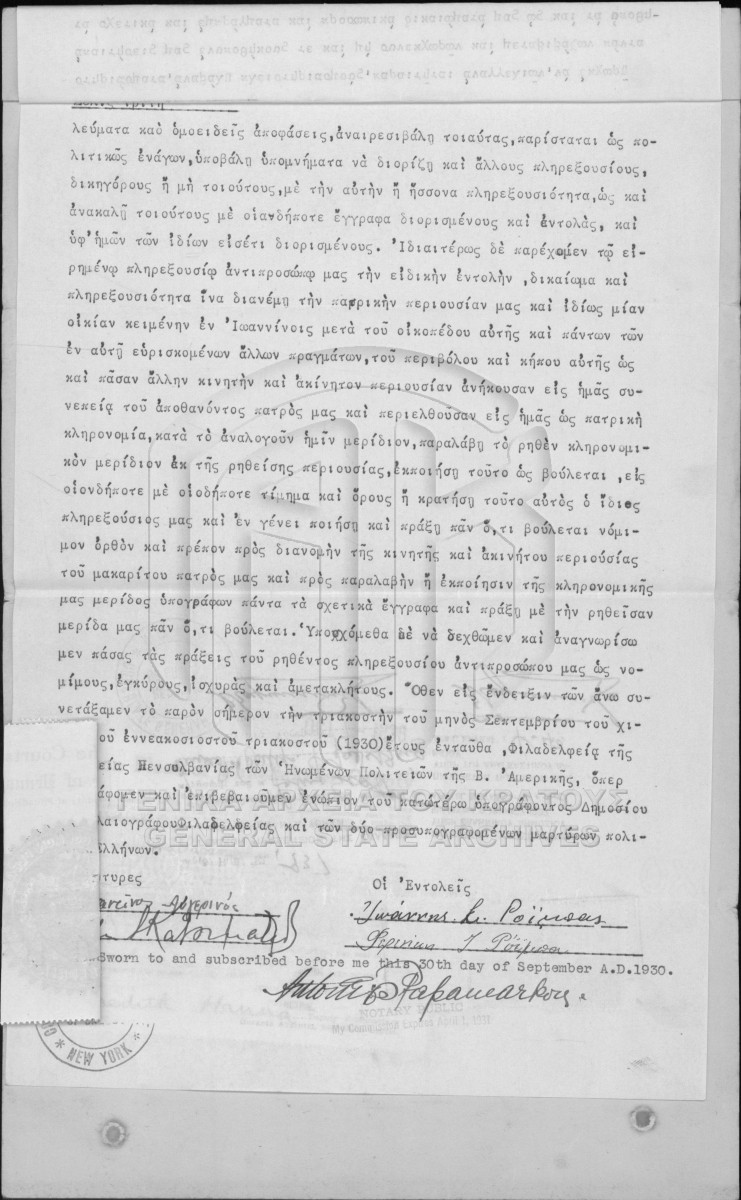 λεύματα καὸ ὁμοειδεῖς ἀποφάσεις,ἀναιρεσιβάλῃ τοιαύτας,παρίσταται ὡς πο-
λιτικῶς ἐνάγων,ὑποβάλῃ ὑπομνήματα νὰ διορίζῃ καὶ ἄλλους πληρεξουσίους,
δικηγόρους ἤ μὴ τοιούτους,μὲ τὴν αὐτὴν ἤ ἥσσονα πληρεξουσιότητα,ὡς καὶ
ἀνακαλῇ τοιούτους μὲ οἱανδήποτε ἔγγραφα διορισμένους καὶ ἐντολὰς, καὶ
ὑφ'ἡμῶν τῶν ἰδίων εἰσέτι διορισμένους. Ἰδιαιτέρως δὲ παρέχομεν τῷ εἰ-
ρημένῳ πληρεξουσίῳ ἀντιπροσώπῳ μας τὴν εἰδικὴν ἐντολὴν ,δικαίωμα καὶ
πληρεξουσιότητα ἵνα διανέμῃ τὴν πατρικὴν περιουσίαν μας καὶ ἰδίως μίαν
οἰκίαν κειμένην ἐν Ἰωαννίνοις μετὰ τοῦ οἰκοπέδου αὐτῆς καὶ πάντων τῶν
ἐν αὐτῇ εὑρισκομένων ἄλλων πραγμάτων,τοῦ περιβόλου καὶ κήπου αὐτῆς ὡς
καὶ πᾶσαν ἄλλην κινητὴν καὶ ἀκίνητον περιουσίαν ἀνήκουσαν εἰς ἡμᾶς συ-
νεπείᾳ τοῦ ἀποθανόντος πατρὸς μας καὶ περιελθουσαν εἰς ἡμᾶς ὡς πατρικὴ
κληρονομία,κατὰ τὸ ἀναλογοῦν ἡμῖν μερίδιον,παραλάβῃ τὸ ρηθὲν κληρονομι-
κὸν μερίδιον ἐκ τῆς ρηθείσης περιουσίας,ἐκποιήσῃ τοῦτο ὡς βούλεται ,εἰς
οἱονδήποτε μὲ οἱοδήποτε τίμημα καὶ ὅρους ἤ κρατήσῃ τοῦτο αὐτὸς ὁ ἴδιος
πληρεξούσιος μας καὶ ἐν γένει ποιήσῃ καὶ πράξῃ πᾶν ὅ,τι βούλεται νόμι-
μον ὀρθὸν καὶ πρέπον πρὸς διανομὴν τῆς κινητῆς καὶ ἀκινήτου περιούσίας
τοῦ μακαρίτου πατρὸς μας καὶ πρὸς παραλαβὴν ἤ ἐκποίησιν τῆς κληρονομικῆς
μας μερίδος ὑπογράφων πάντα τὰ σχετικὰ ἔγγραφα καὶ πράξῃ μὲ τὴν ρηθεῖσαν
μερίδα μας πᾶν ὅ,τι βούλεται. Ὑποσχόμεθα δὲ νὰ δεχθῶμεν καὶ ἀναγνωρίσω
μεν πάσας τὰς πράξεις τοῦ ρηθέντος πληρεξουσίου ἀντιπροσώπου μας ὡς νο-
μίμους,ἐγκύρους,ἰσχυρὰς καὶ ἀμετακλήτους. Ὅθεν εἰς ἔνδειξιν τῶν ἄνω συ-
νετάξαμεν τὸ παρὸν σήμερον τὴν τριακοστὴν τοῦ μηνὸς Σεπτεμβρίου τοῦ χι-
οῦ ἐννεακοσιοστοῦ τριακοστοῦ (1930)ἔτους ἐνταῦθα ,Φιλαδελφείᾳ τῆς
είας Πενσυλβανίας τῶν Ἡνωμένων Πολιτειῶν τῆς Β. Ἀμερικῆς, ὅπερ
άφομεν καὶ ἐπιβεβαιοῦμεν ἐνώπιον τοῦ κατωτέρω ὑπογράφοντος Δημοσίου
λαιογράφουΦιλαδελφείας καὶ τῶν δύο προσυπογραφομένων μαρτύρων πολι-
λλήνων.
ΓΕΝΙΚΑ ΑΡΧΕΙΑ ΤΟΥ ΚΡΑΤΟΥΣ
GENERAL STATE ARCHIVES
τυρες
Οἱ Ἐντολεῖς
Ἰωάννης
Sworn to and subscribed before me this 30th day of September A.D.1930.
NOTARY PUBLIC
My Commission Expires April
* NEW YORK *